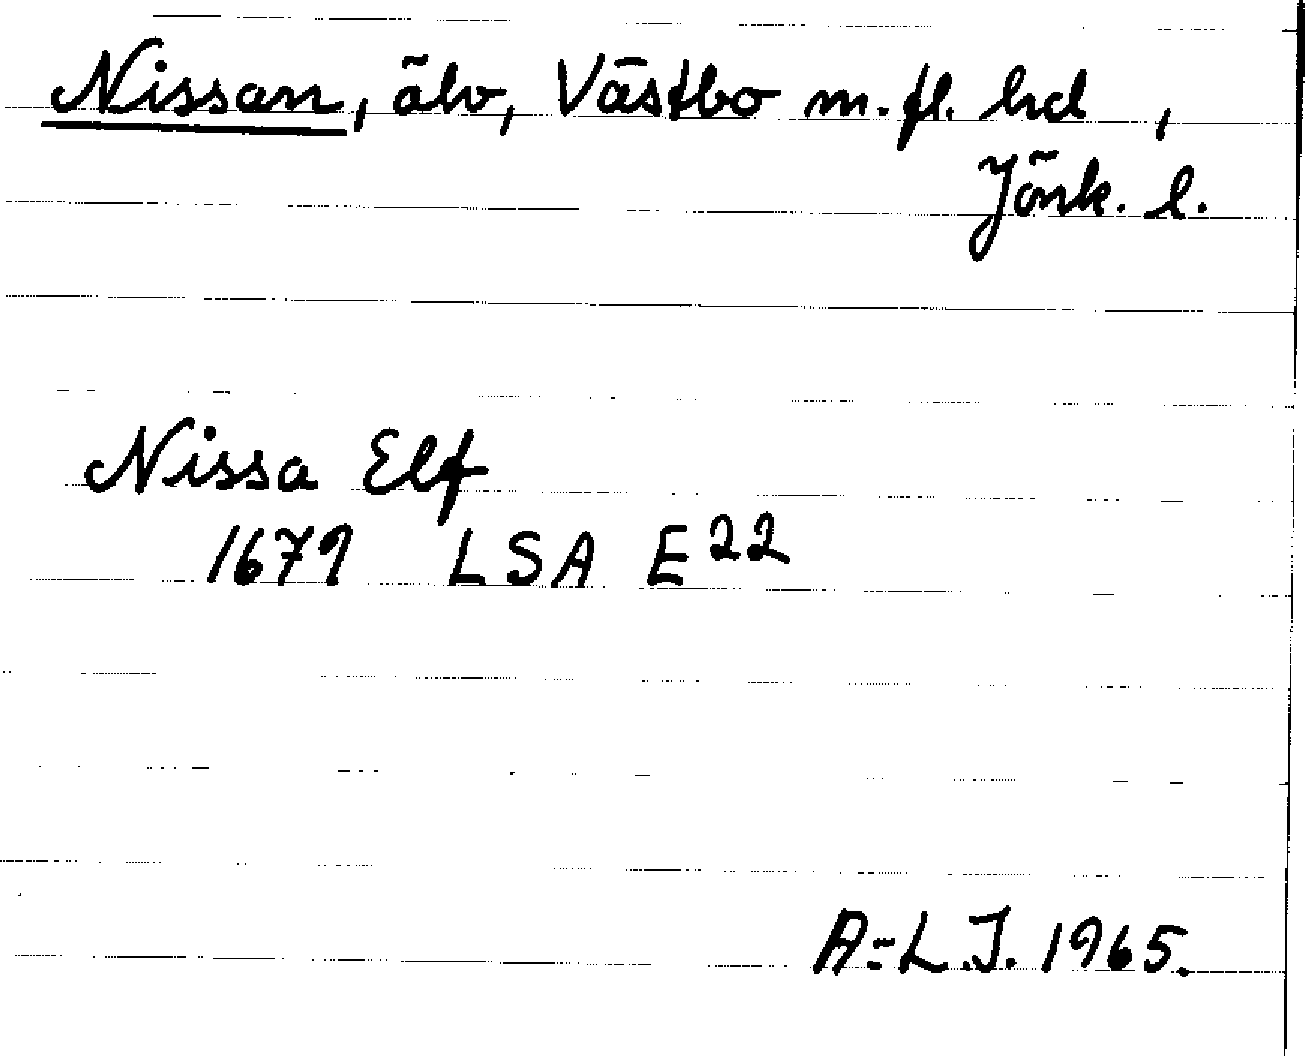 Nissan, älv, Västbo m.fl. hd ,
Jönk. l.
Nissa Elf
1679 LSA E22
A-L.J. 1965.